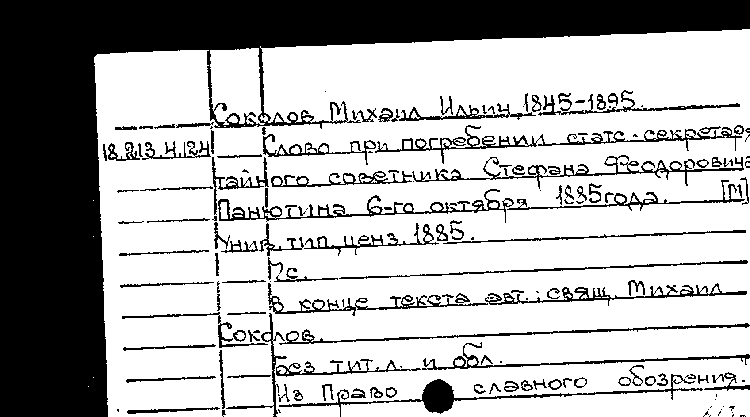 Соколов, Михаил Ильич, 1845-1895.
18.213.4.124 Слово при погребении статс-секретаря
тайного советника Стефана Феодоровича
Панютина 6-го октября 1885 года. [М]
Унив. тип., ценз. 1885.
7с.
В конце текста авт.: свящ. Михаил
Соколов.
Без тит. л. и обл.
Из Право славного обозрения.